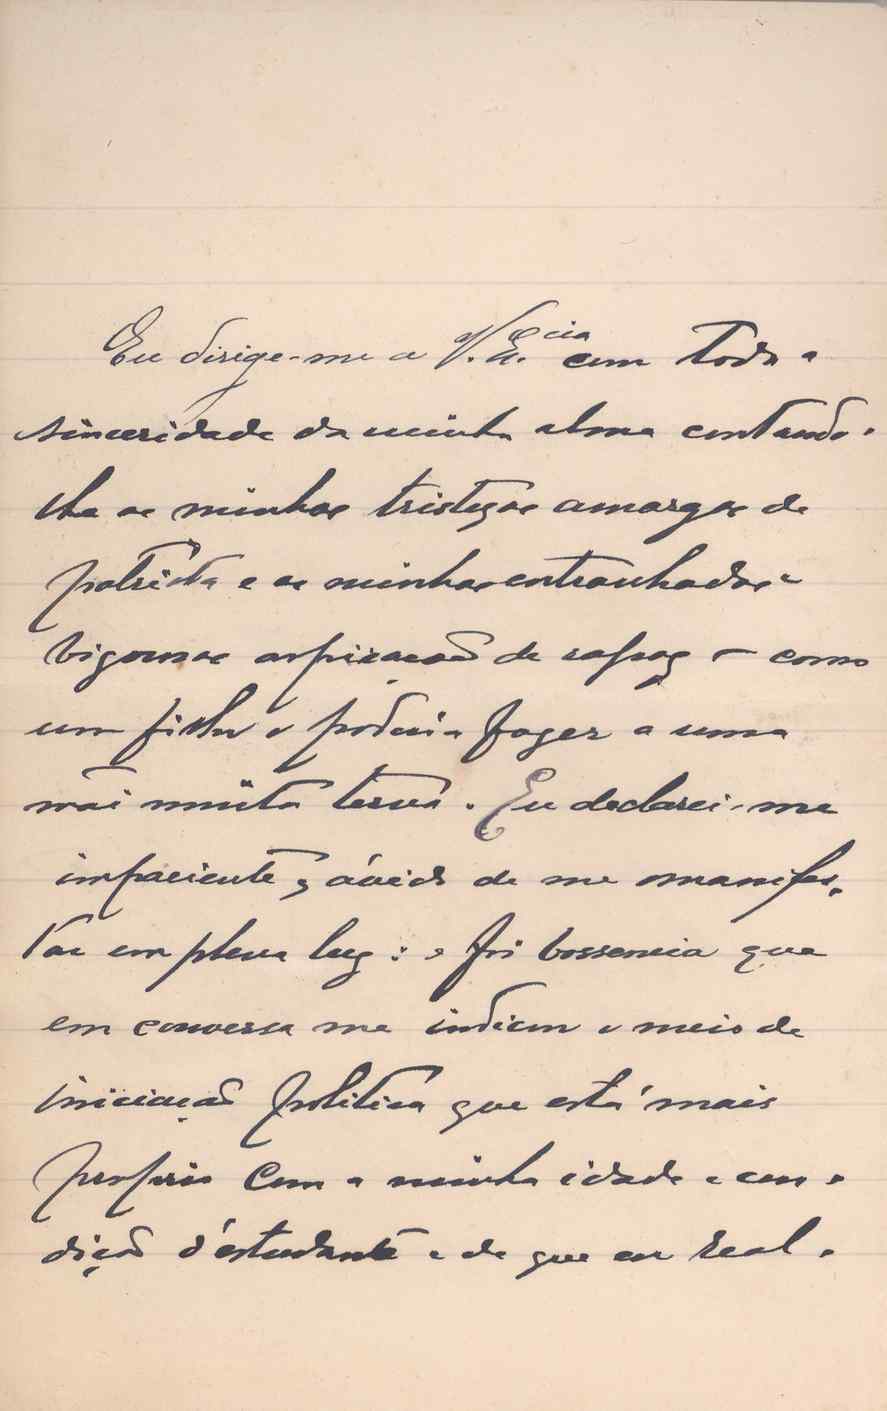 Eu dirige-me a V. Ex.cia com toda a
sinceridade da minha alma contando-
lhe as minhas tristezas amargas de
patriota e as minhas entranhadas e
vigorosas aspirações de rapaz — como
um filho o poderia fazer a uma
mãi muito terna. Eu declarei-me
impaciente, ávido de me manifes-
tar em plena luz: e foi vossencia que
em conversa me indicou o meio de
iniciação politica que está mais
proprio com a minha idade e con-
dição d'estudante e de que eu real-